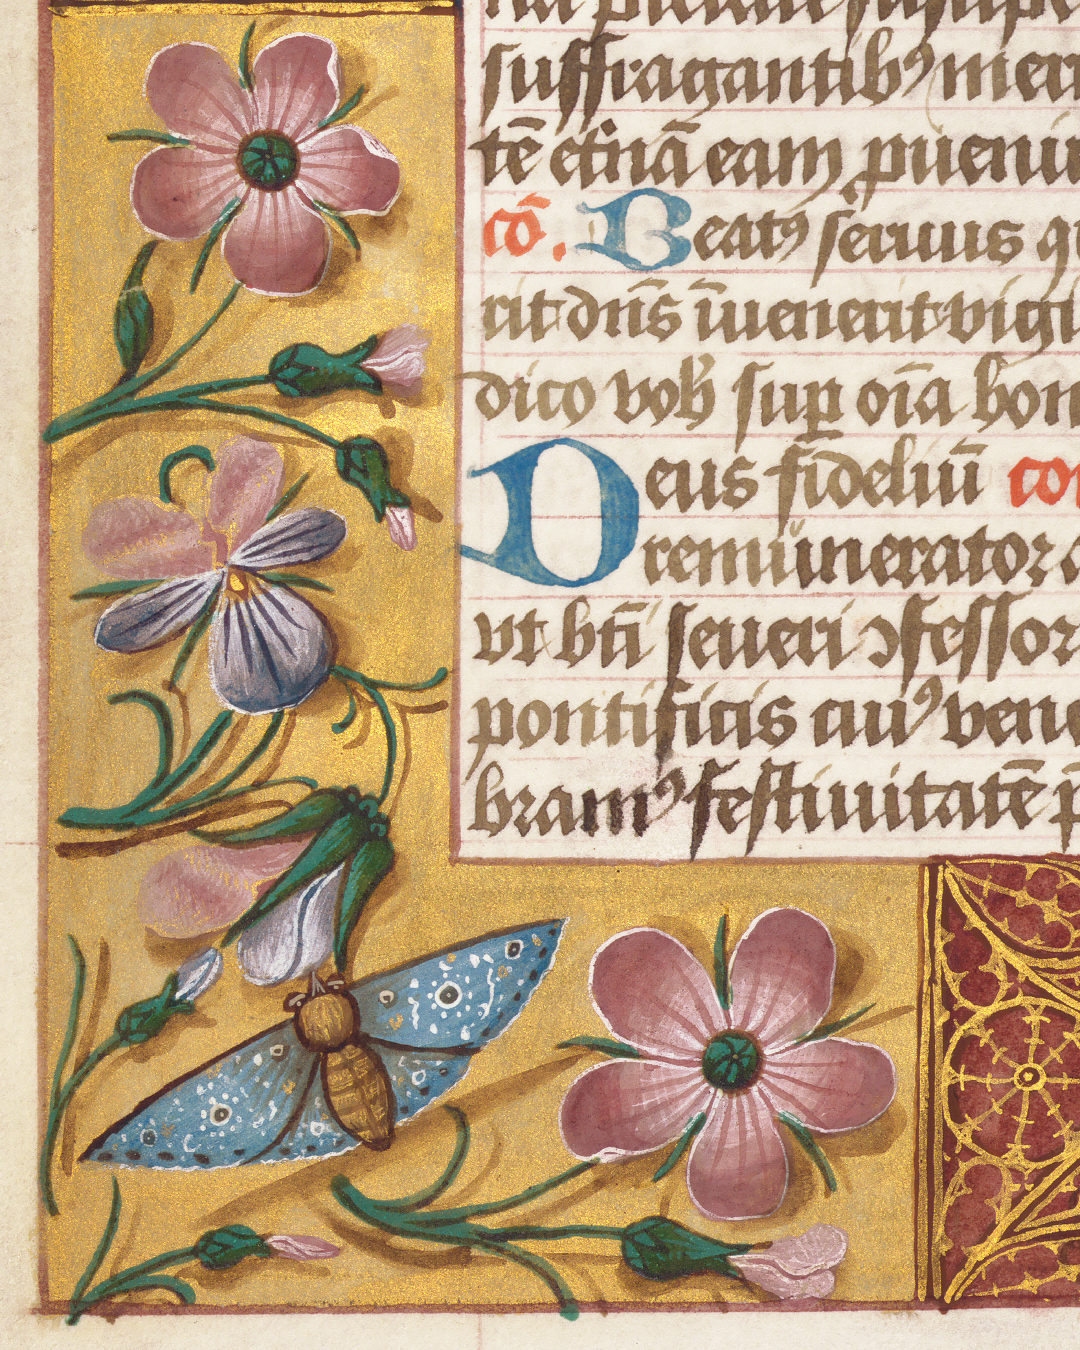 suffragantibꝰ meri
tē et̄nā eam ꝑueniu
cō. Beatꝰ seruus qu
rit dn̄s īuenerit vigi
dico vob̄ sup oīa bon
Deus fideliū cor
remūnerator
vt bt̄i seueri ɔfessor
pontificis cuiꝰ vene
bramꝰ festiuitatē p